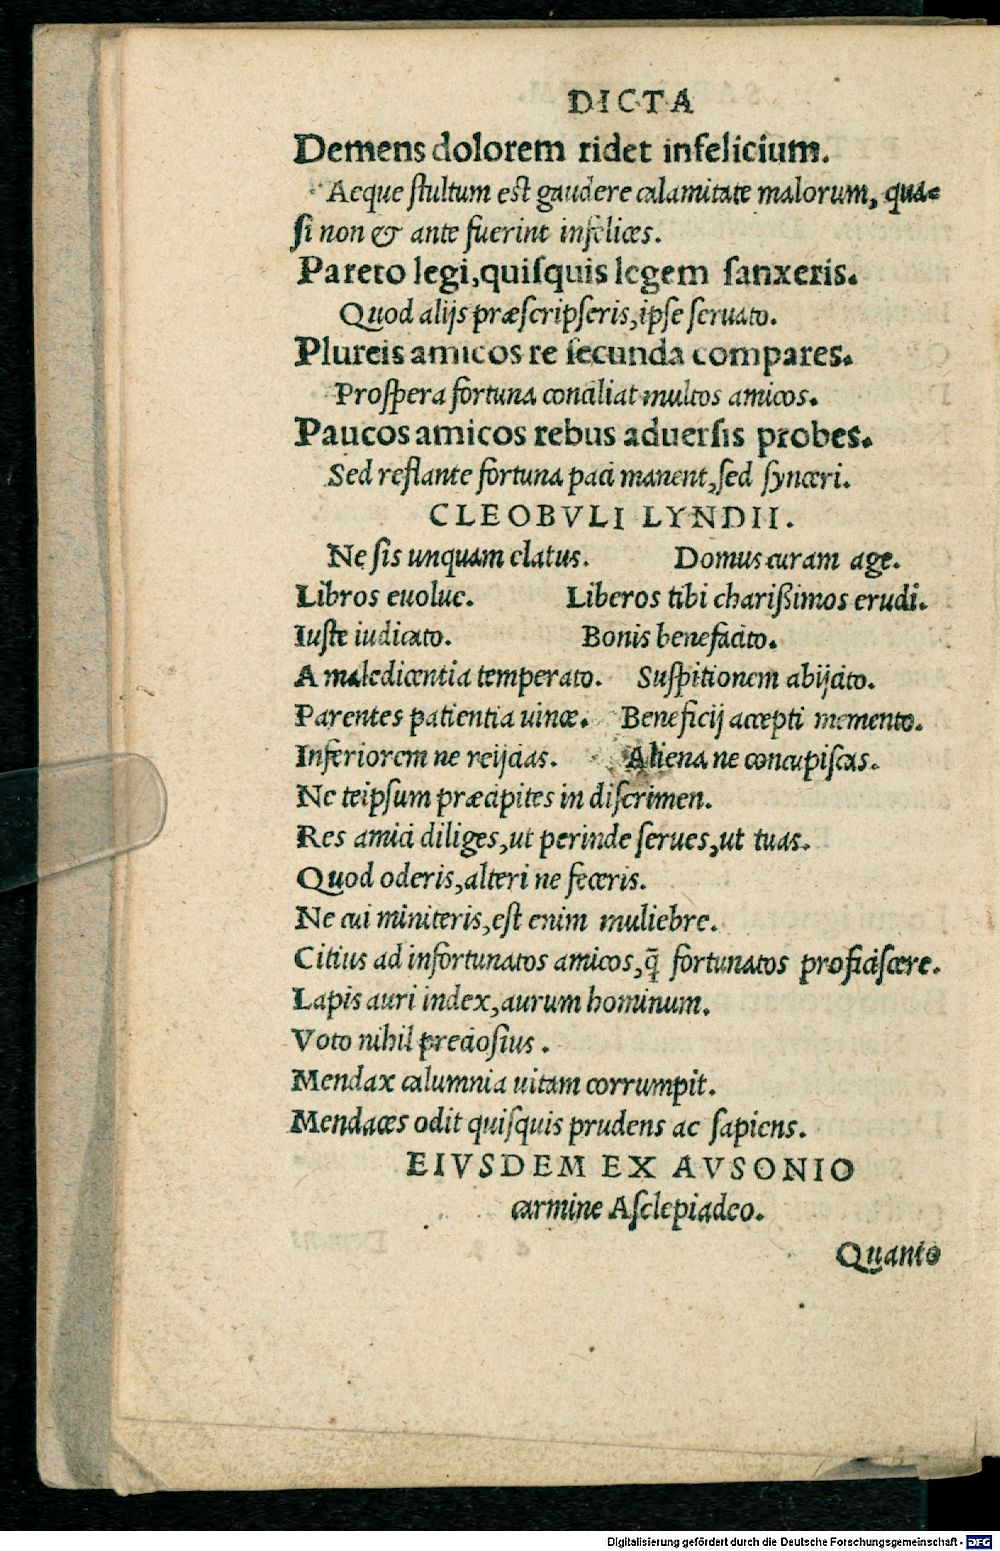 DICTA
Demens dolorem ridet infelicium.
Aeque ſtultum eſt gaudere calamitate malorum, qua=
ſi non & ante fuerint infelices.
Pareto legi,quiſquis legem ſanxeris.
Quod alijs præſcripſeris,ipſe ſeruato.
Plureis amicos re ſecunda compares.
Proſpera fortuna conciliat multos amicos.
Paucos amicos rebus aduerſis probes.
Sed reflante fortuna paci manent,ſed ſynceri.
CLEOBVLI LYNDII.
Ne ſis unquam elatus. Domus curam age.
Libros euolue. Liberos tibi chariſſimos erudi.
Iuſte iudicato. Bonis benefacito.
A maledicentia temperato. Suſpitionem abijcito.
Parentes patientia uince. Beneficij accepti memento.
Inferiorem ne reijcias. Aliena ne concupiſcas.
Ne teipſum præcipites in diſcrimen.
Res amici diliges,ut perinde ſerues,ut tuas.
Quod oderis,alteri ne feceris.
Ne cui miniteris,eſt enim muliebre.
Citius ad infortunatos amicos,q̃ fortunatos proficiſcere.
Lapis auri index,aurum hominum.
Voto nihil precioſius .
Mendax calumnia uitam corrumpit.
Mendaces odit quiſquis prudens ac ſapiens.
EIVSDEM EX AVSONIO
carmine Aſclepiadeo.
Quanto
Digitalisierung gefördert durch die Deutsche Forschungsgemeinschaft - DFG